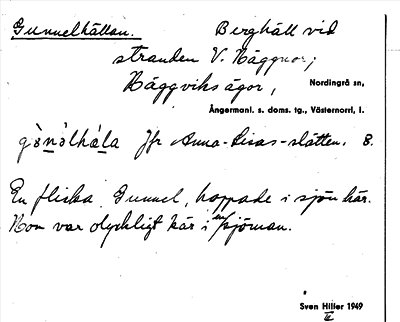 Gunnelhällan. Berghäll vid
stranden V. Räggnor;
Häggviks ägor, Nordingrå sn,
Ångermanl. s. doms. tg., Västernorrl. l.
Jfr Anna-Lisas-slätten. 8.
En flicka Gunnel, hoppade i sjön här.
Hon var olyckligt kär i en sjöman.
Sven Hiller 1949
II